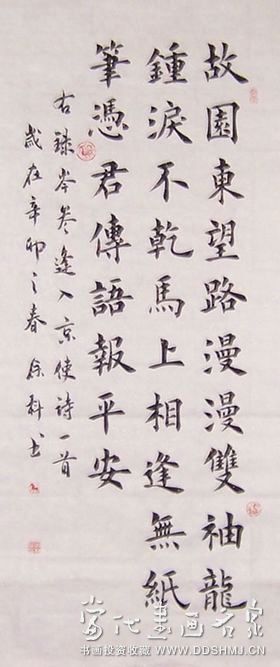 故園東望路漫漫雙袖龍
鍾淚不乾馬上相逢無紙
筆憑君傳語報平安
右録岑參逢入京使诗一首
歲在辛卯之春 徐科书
当代书画名家
书画投资收藏 WWW.DDSHMJ.CN